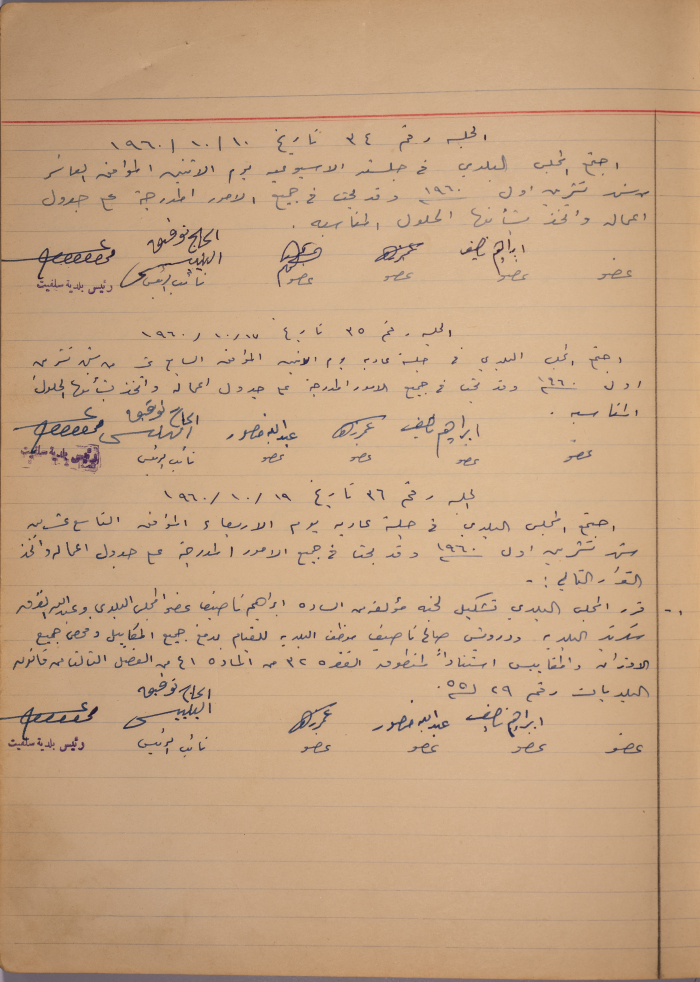 الجلسه رقم ٣٤ تاريخ ١٠/١٠/١٩٦٠
اجتمع المجلس البلدي في جلسته الاسبوعيه يوم الاثنين الموافق العاشر
من شهر تشرين اول ١٩٦٠ وقد بحث في جميع الامور المدرجة على جدول
اعماله واتخذ بشأنها الحلول المناسبه .
ابراهيم ناصيف الحاج توفيق
عضو عضو عضو عضو نائب الرئيس رئيس بلدية سلفيت
الجلسه رقم ٣٥ تاريخ ١٧/١٠/١٩٦٠
اجتمع المجلس البلدي في جلسة عاديه يوم الاثنين الموافق السابع عشر من شهر تشرين
اول ١٩٦٠ وقد بحث في جميع الامور المدرجة على جدول اعماله واتخذ بشأنها الحلول
المناسبه .
ابراهيم ناصيف عبدالله منصور الحاج توفيق
عضو عضو عضو عضو نائب الرئيس رئيس بلدية سلفيت
الجلسه رقم ٣٦ تاريخ ١٩/١٠/١٩٦٠
اجتمع المجلس البلدي في جلسة عاديه يوم الاربعاء الموافق التاسع عشر من
شهر تشرين اول ١٩٦٠ وقد بحث في جميع الامور المدرجة على جدول اعماله واتخذ
القرار التالي :-
١- قرر المجلس البلدي تشكيل لجنه مؤلفة من الساده ابراهيم ناصيف عضو المجلس البلدي
سكرتير البلديه ودرويش صالح ناصيف موظف البلديه للقيام بدمغ جميع المكاييل وفحص جميع
الاوزان والمقاييس استناداً لمنطوق الفقره ٣٢ من الماده ٤١ من الفصل الثالث من قانون
البلديات رقم ٢٩ لسنة ٥٥.
ابراهيم ناصيف عبدالله منصور الحاج توفيق
عضو عضو عضو عضو نائب الرئيس رئيس بلدية سلفيت